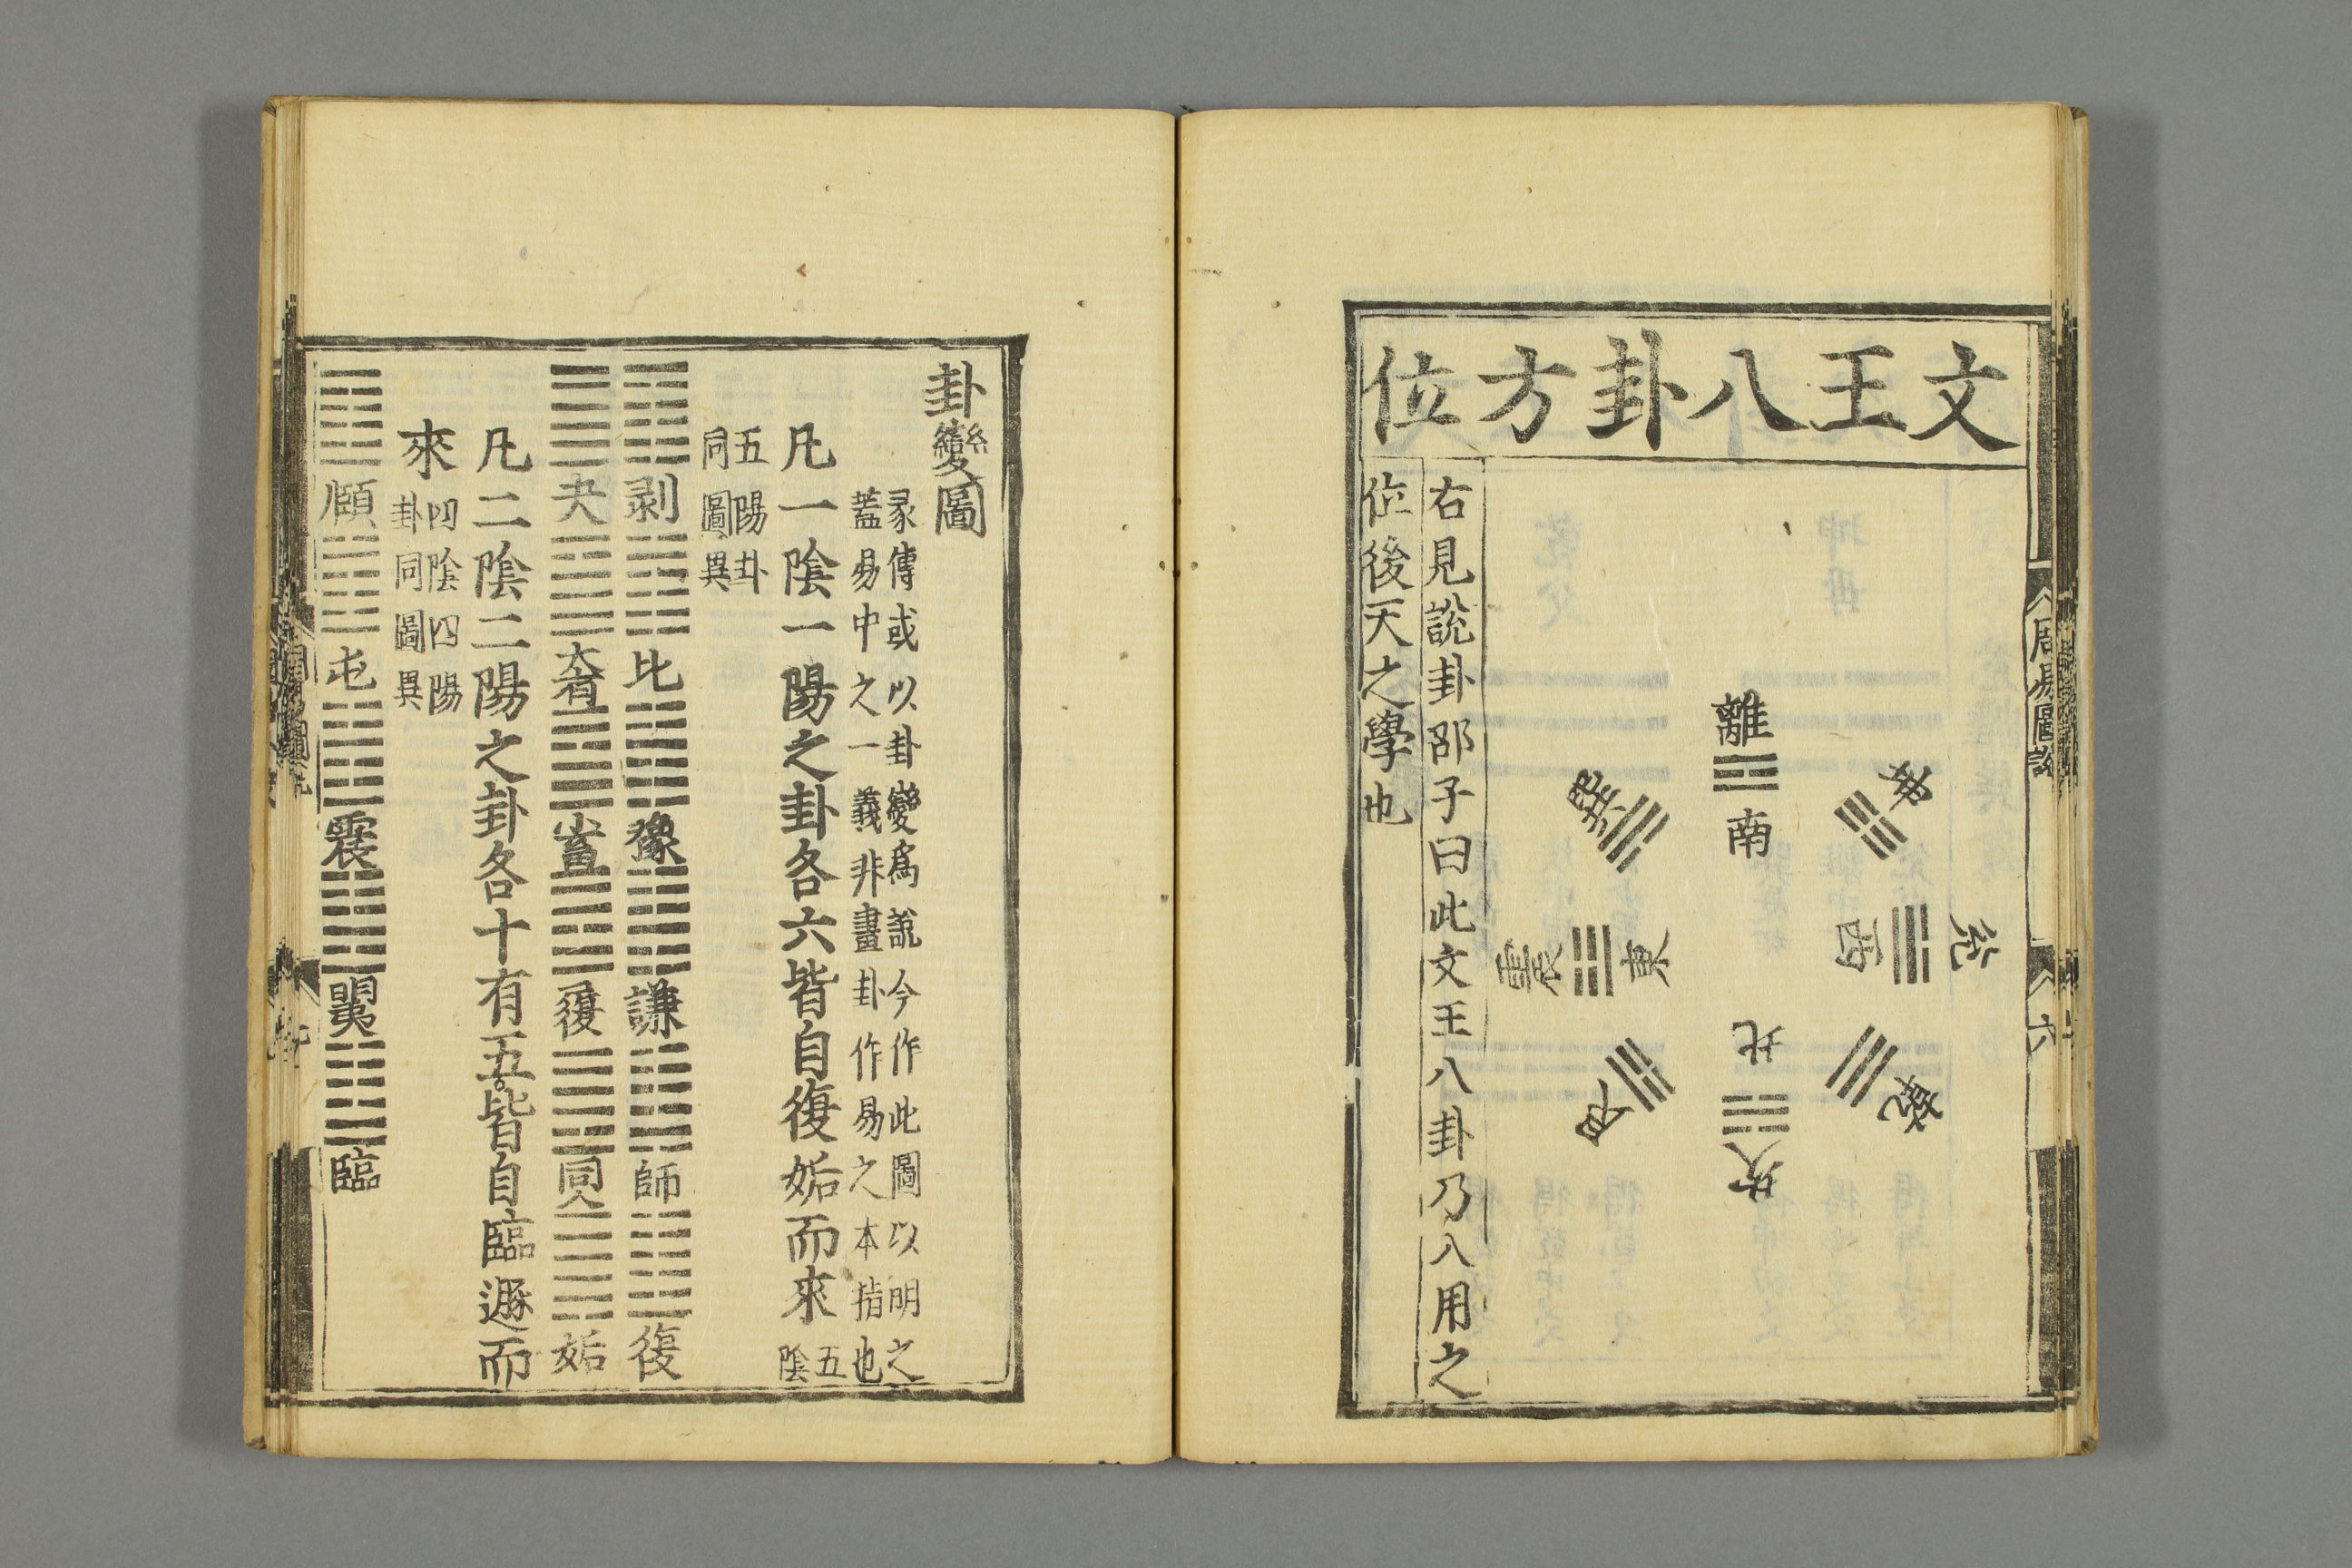 文王八卦方位
離
南
坤
兌
西
乾
北
坎
艮
震
東
巽
右見說卦邵子曰此文王八卦乃入用之
位後天之學也
周易圖說
六
卦變圖
彖傳或以卦變爲說今作此圖以明之
蓋易中之一義非畫卦作易之本指也
凡一陰一陽之卦各六皆自復姤而來五
陰
五陽卦
同圖異
剥 比 豫 謙 師 復
夬 大有 小畜 履 同人 姤
凡二陰二陽之卦各十有五皆自臨遯而
來四陰四陽
卦同圖異
頤 屯 震 明夷 臨